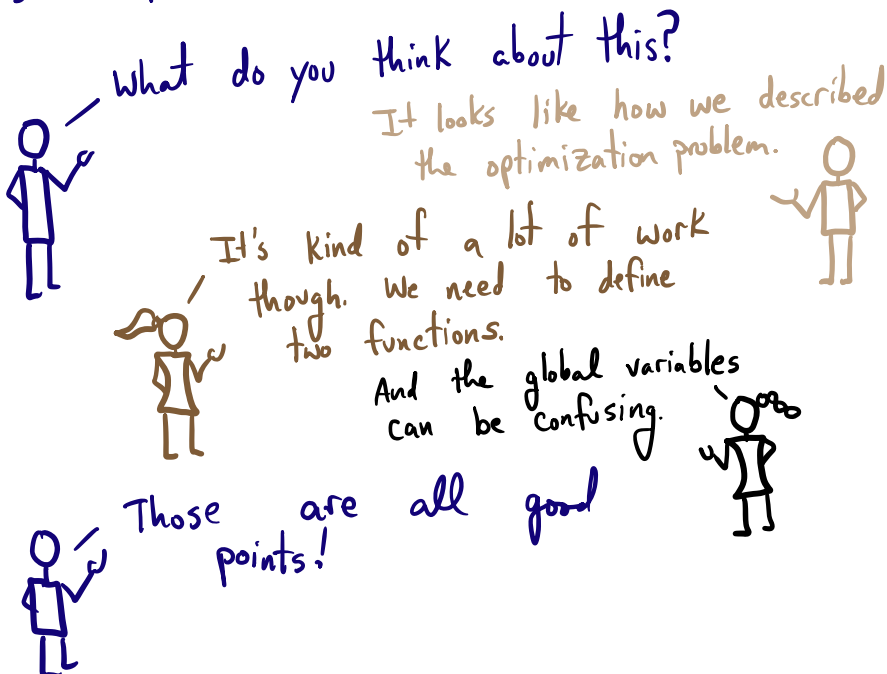 What do you think about this?
It looks like how we described
the optimization problem.
It's kind of a lot of work
though. We need to define
two functions.
And the global variables
can be confusing.
Those are all good
points!